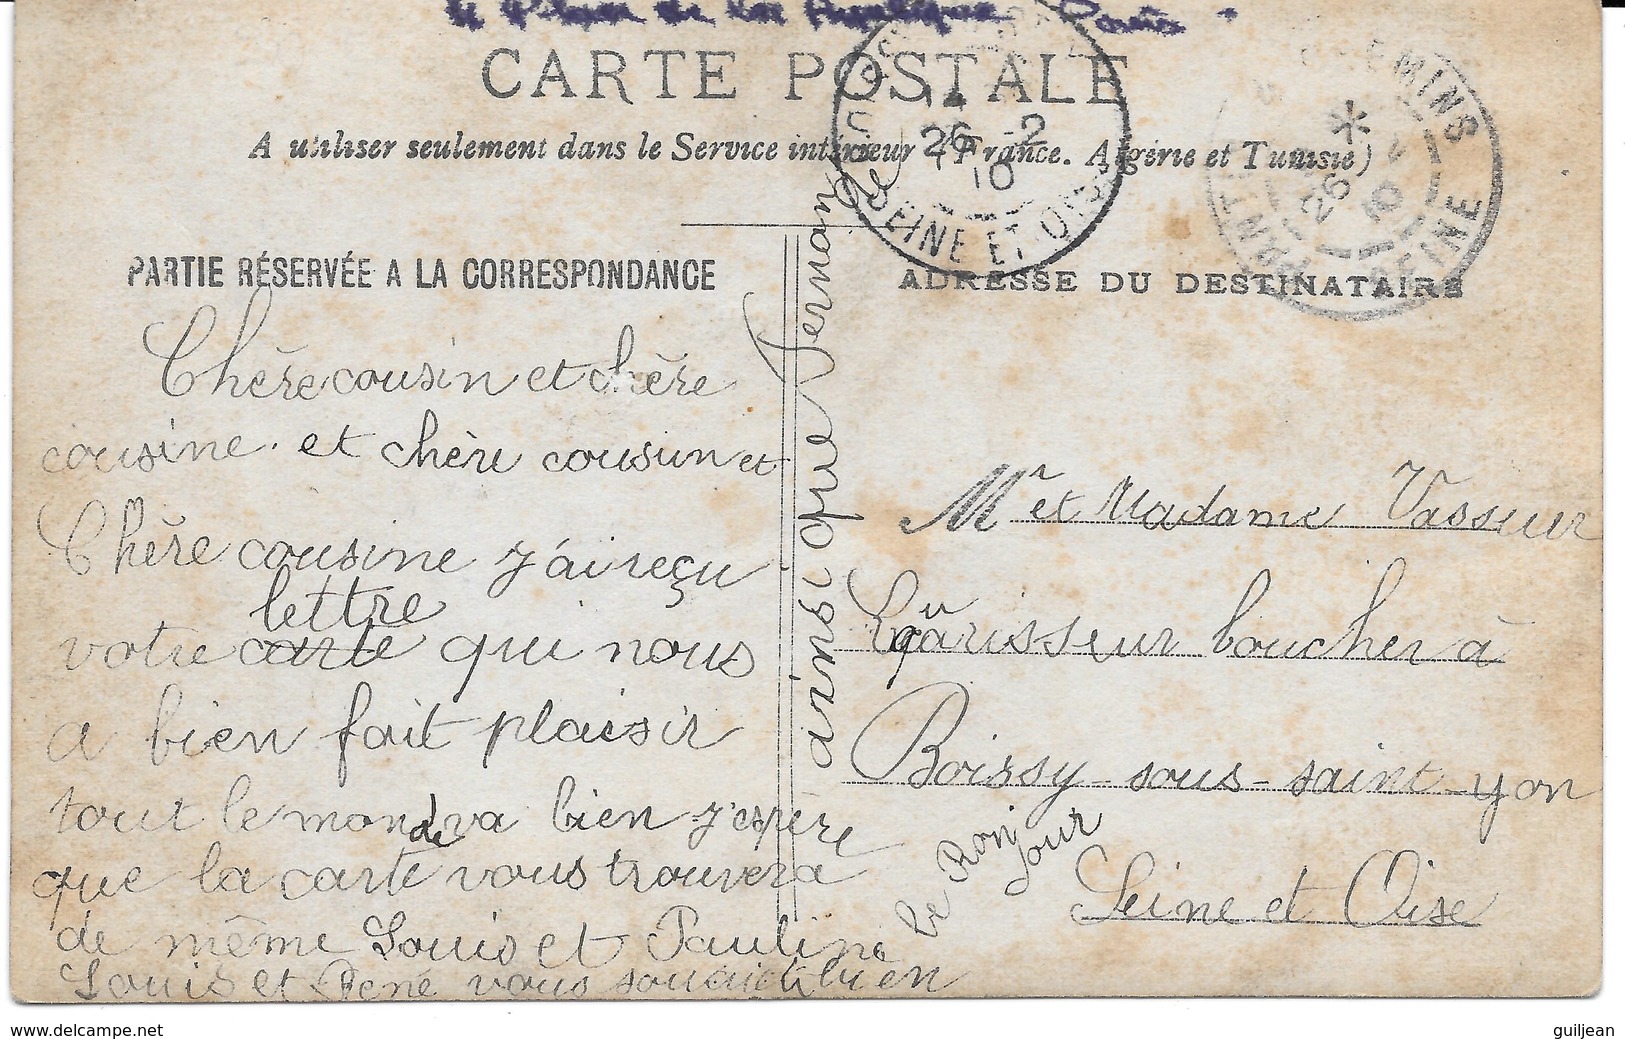 CARTE POSTALE
A utiliser seulement dans le Service intérieur (France. Algérie et Tunisie)
26 2
10
SEINE ET OISE
26
10
SEINE
PARTIE RÉSERVÉE A LA CORRESPONDANCE
ADRESSE DU DESTINATAIRE
Chère cousin et chère
cousine. et chère cousin et
Chère cousine j'ai reçu
lettre
votre carte qui nous
a bien fait plaisir
tout le monde va bien j'espère
que la carte vous trouvera
de même Louis et Pauline
Louis et René vous souaite bien
le Bonjour
ainsi que Fernande
Mr et Madame Vasseur
boucher à
Boissy-sous-saint-yon
Seine et Oise
www.delcampe.net
guiljean